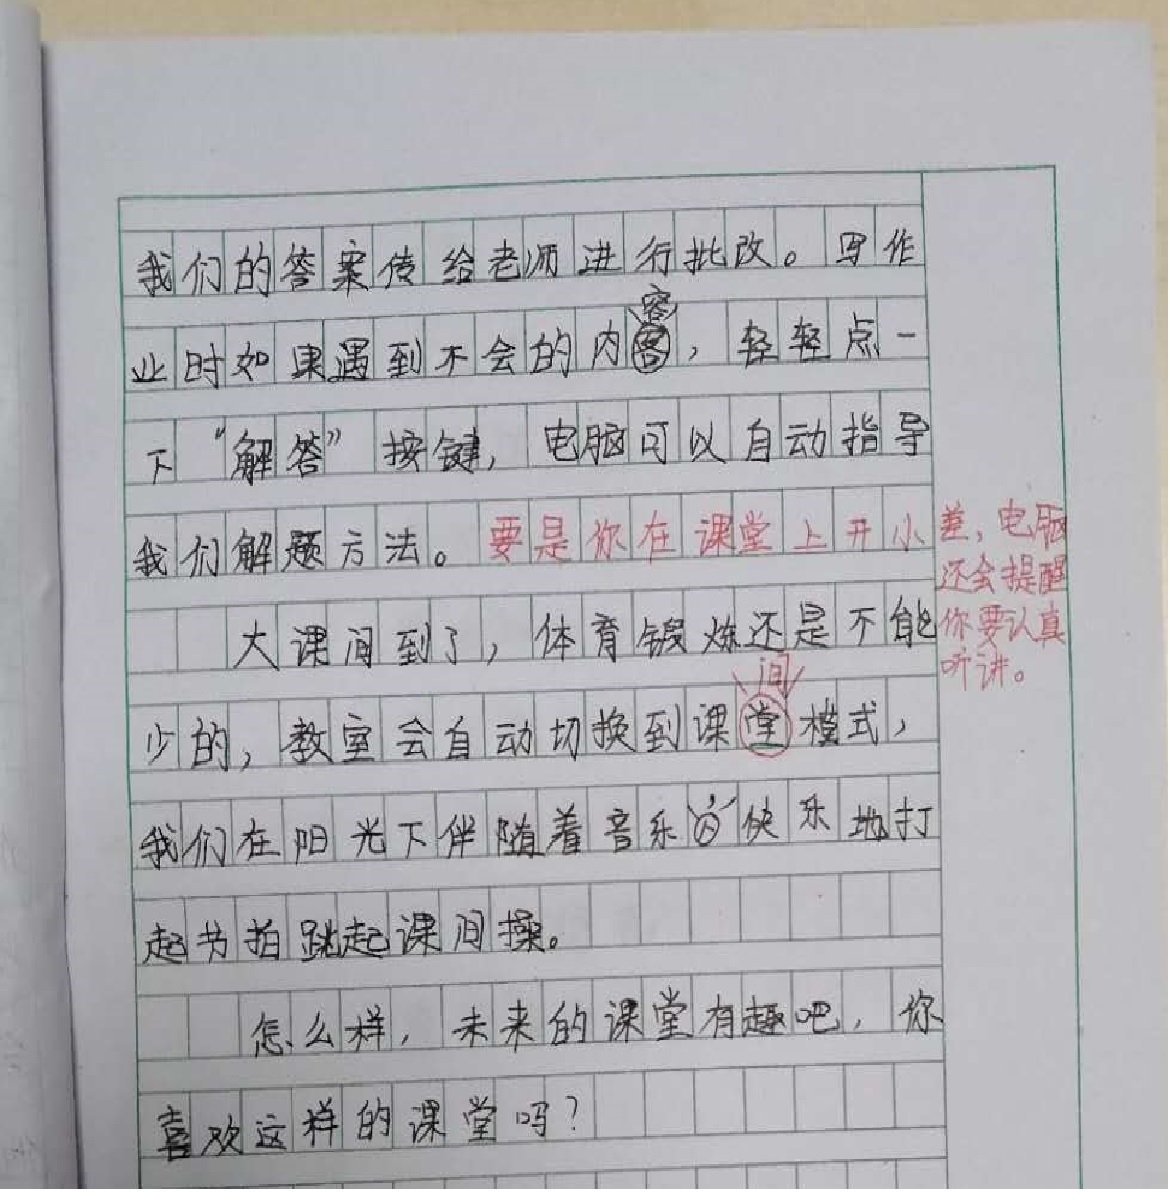 我们的答案传给老师进行批改。写作
容
业时如果遇到不会的内容，轻轻点一
下“解答”按键，电脑可以自动指导
我们解题方法。要是你在课堂上开小差，电脑
还会提醒
你要认真
听讲。
大课间到了，体育锻炼还是不能
间
少的，教室会自动切换到课堂模式，
我们在阳光下伴随着音乐快乐地打
起节拍跳起课间操。
怎么样，未来的课堂有趣吧，你
喜欢这样的课堂吗？